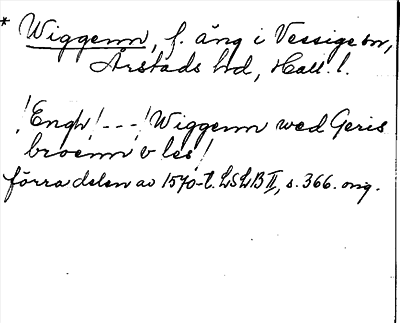 * Wiggenn, f. äng i Vessige sn,
Årstads hd, Hall. l.
/Engh/ - - - /Wiggenn wed Geris
broenn v les/
förra delen av 1570-t. LSLB II, s. 366. orig.